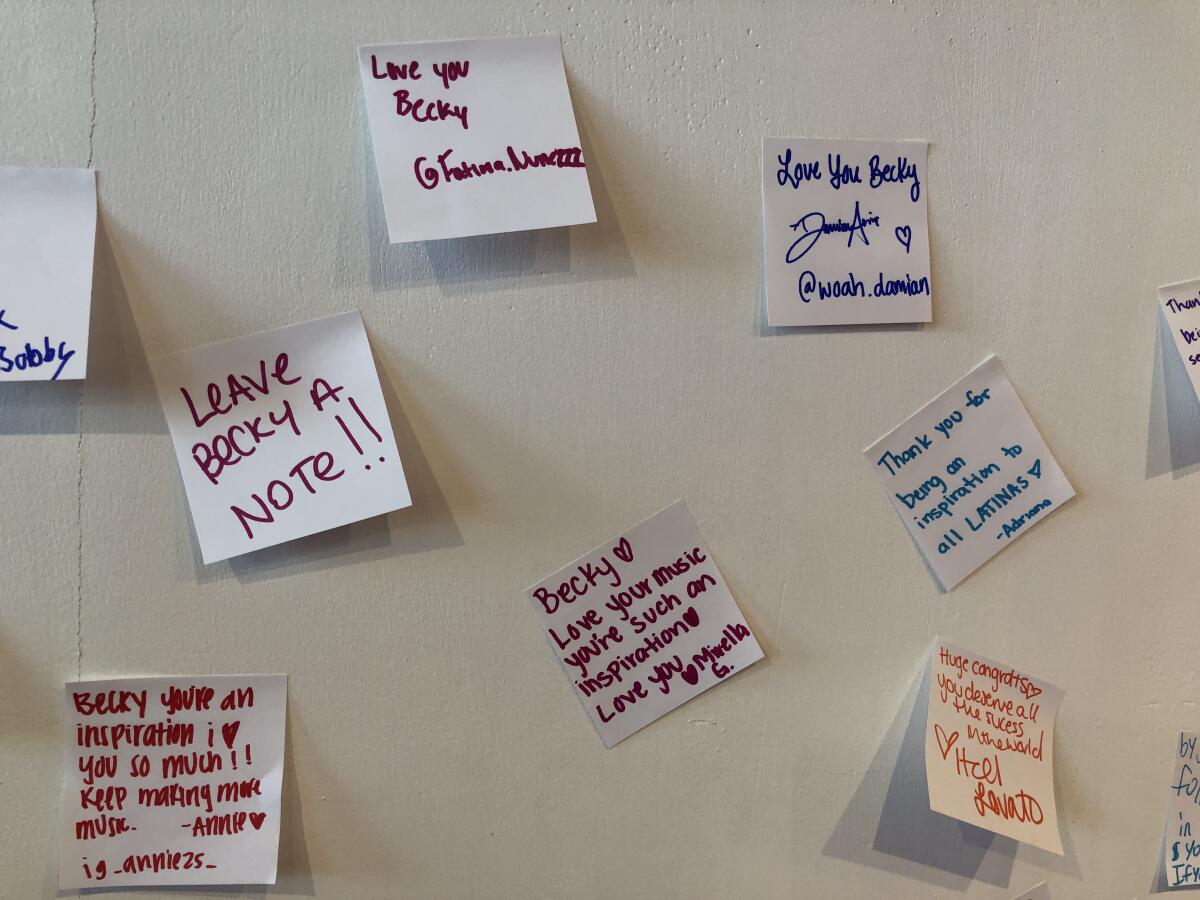 Love you
Becky
@Fatima.Nunezzz
Love You Becky
@woah.damian
Sabby
LEAVE
BECKY A
NOTE!!
Thank you for
being an
inspiration to
all LATINAS ♡
-Adriana
Becky ♡
Love your music
you're such an
inspiration ♥
Love you ♥ Mirella
G.
Becky you're an
inspiration i ♥
you so much!!
Keep making more
music. -Annie ♥
ig_annie25_
Huge congrats ♡
you deserve all
the sucess
in the world
♡ Itzel
Lovato
Thank
bei
se
by
in
$ yo